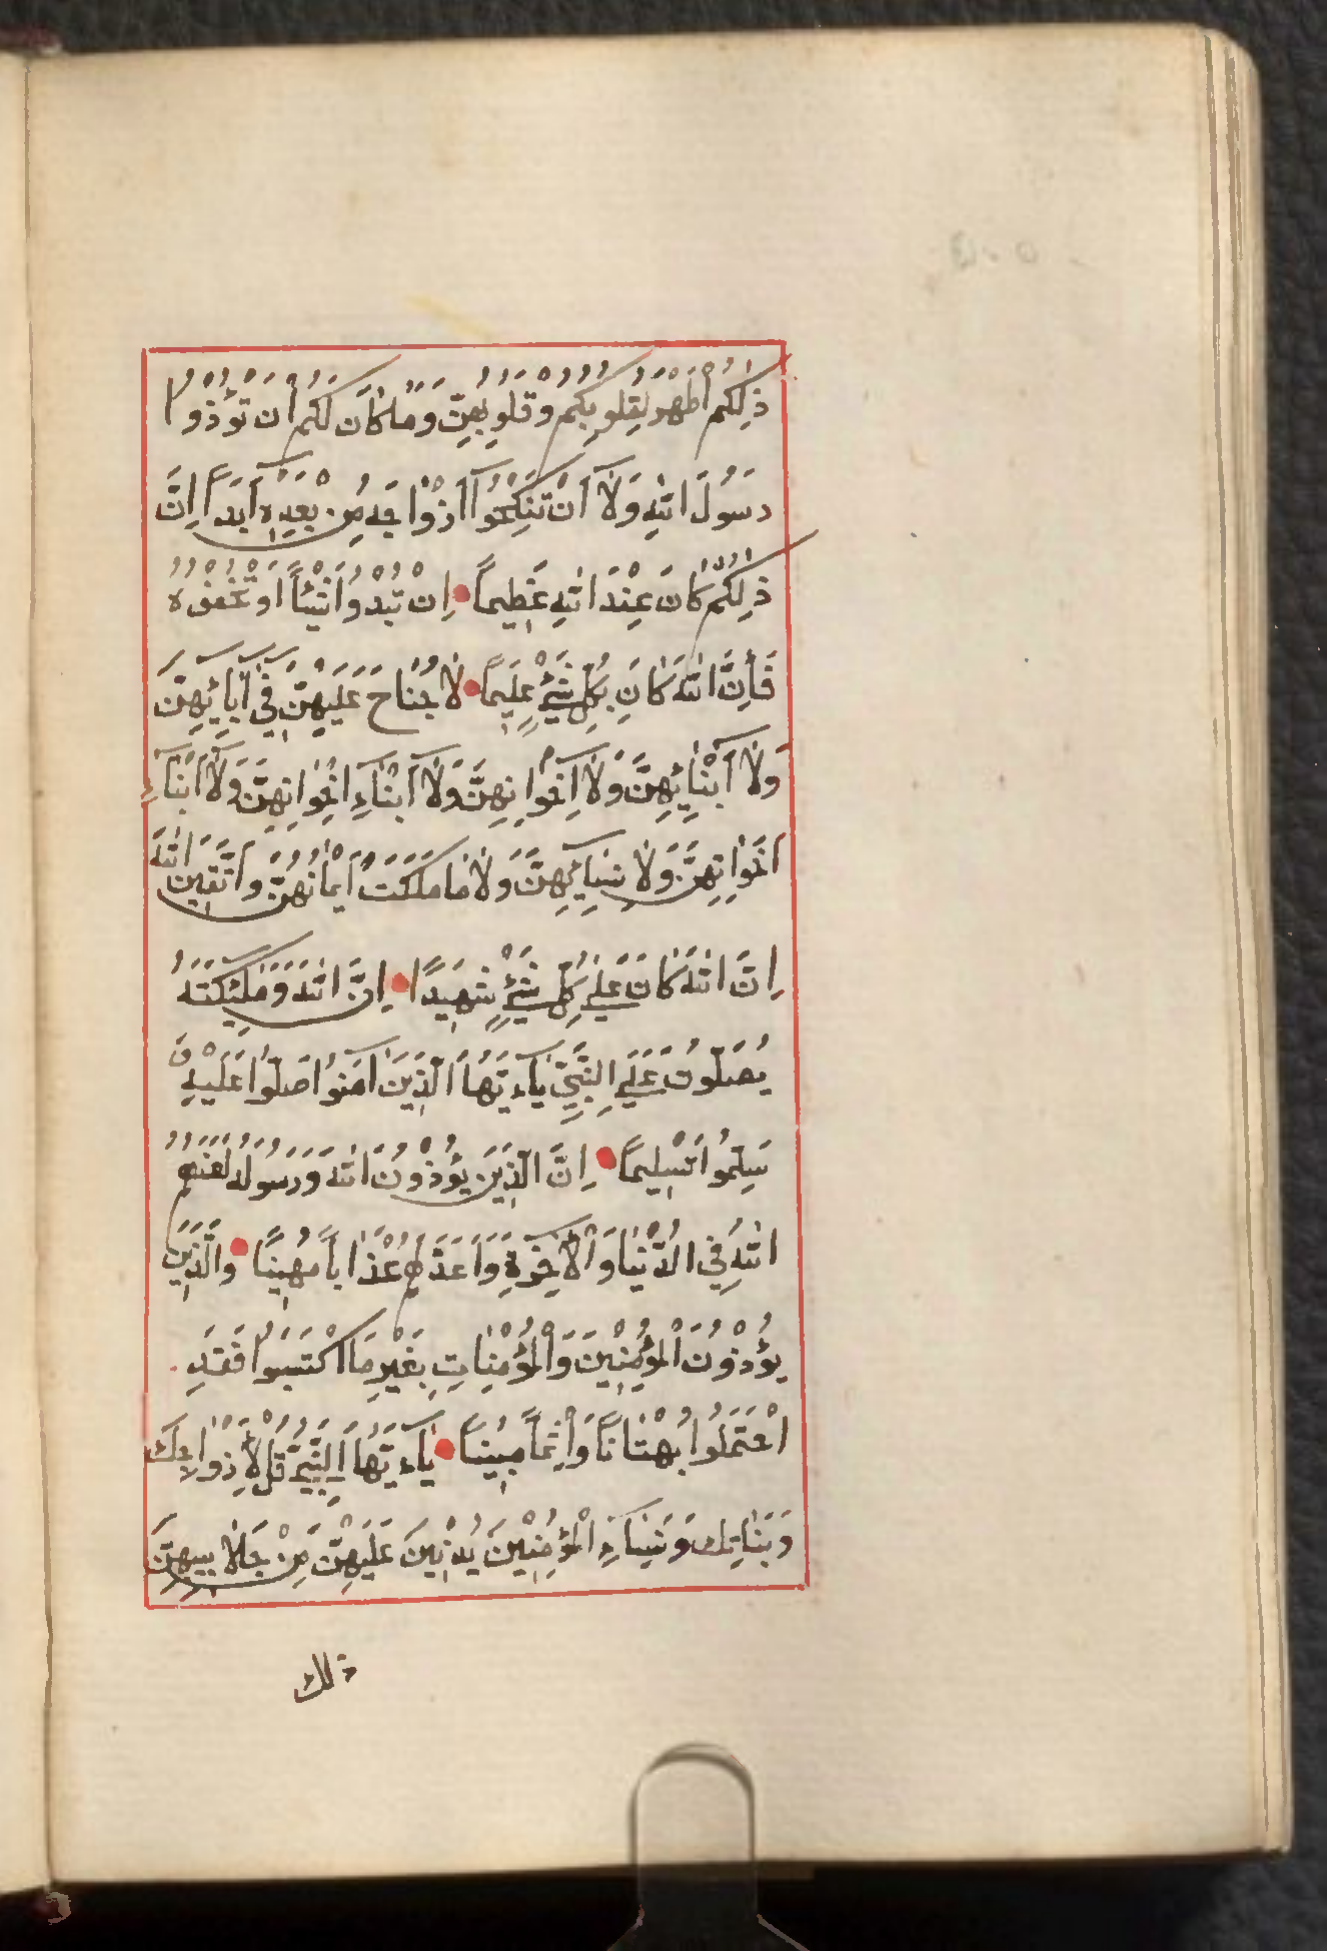 ذٰلِكُمْ اَطْهَرُ لِقُلُوبِكُمْ وَقُلُوبِهِنَّ وَمَا كَانَ لَكُمْ اَنْ تُؤْذُوا
رَسُولَ اللّٰهِ وَلَٓا اَنْ تَنْكِحُٓوا اَزْوَاجَهُ مِنْ بَعْدِهِٓ اَبَدًا اِنَّ
ذٰلِكُمْ كَانَ عِنْدَ اللّٰهِ عَظِيمًا اِنْ تُبْدُوا شَيْئًا اَوْ تُخْفُوهُ
فَاِنَّ اللّٰهَ كَانَ بِكُلِّ شَيْءٍ عَلِيمًا لَا جُنَاحَ عَلَيْهِنَّ فِي اٰبَٓائِهِنَّ
وَلَٓا اَبْنَٓائِهِنَّ وَلَٓا اِخْوَانِهِنَّ وَلَٓا اَبْنَٓاءِ اِخْوَانِهِنَّ وَلَٓا اَبْنَٓاءِ
اَخَوَاتِهِنَّ وَلَا نِسَٓائِهِنَّ وَلَا مَا مَلَكَتْ اَيْمَانُهُنَّ وَاتَّقِينَ اللّٰهَ
اِنَّ اللّٰهَ كَانَ عَلٰى كُلِّ شَيْءٍ شَهِيدًا اِنَّ اللّٰهَ وَمَلٰٓئِكَتَهُ
يُصَلُّونَ عَلَى النَّبِيِّ يَٓاءَيُّهَا الَّذِينَ اٰمَنُوا صَلُّوا عَلَيْهِ وَ
سَلِّمُوا تَسْلِيمًا اِنَّ الَّذِينَ يُؤْذُونَ اللّٰهَ وَرَسُولَهُ لَعَنَهُمُ
اللّٰهُ فِي الدُّنْيَا وَالْاٰخِرَةِ وَاَعَدَّ لَهُمْ عَذَابًا مُهِينًا وَالَّذِينَ
يُؤْذُونَ الْمُؤْمِنِينَ وَالْمُؤْمِنَاتِ بِغَيْرِ مَا اكْتَسَبُوا فَقَدِ
احْتَمَلُوا بُهْتَانًا وَاِثْمًا مُبِينًا يَٓاءَيُّهَا النَّبِيُّ قُلْ لِاَزْوَاجِكَ
وَبَنَاتِكَ وَنِسَٓاءِ الْمُؤْمِنِينَ يُدْنِينَ عَلَيْهِنَّ مِنْ جَلَابِيبِهِنَّ
ذلك